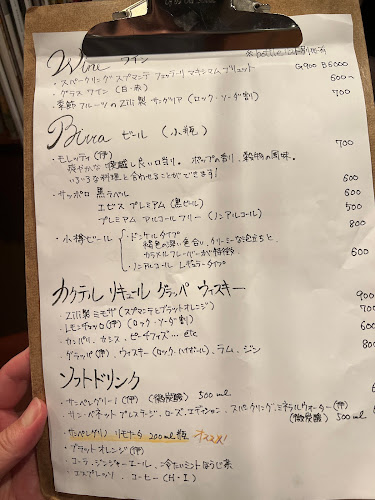 Wine ワイン
・スパークリング スプマンテ フェッラーリ マキシマム ブリュット G900 B6000
・グラスワイン (白・赤) 500〜
・季節フルーツのZili製 サングリア (ロック・ソーダ割) 700
Birra ビール (小瓶)
・モレッティ (伊) 700
爽やかな喉越し良い口当り。ホップの香り、穀物の風味。
いろいろな料理と合わせることができます!
・サッポロ 黒ラベル 600
ヱビス プレミアム (黒ビール) 600
プレミアム アルコールフリー (ノンアルコール) 500
・小樽ビール ドンケルタイプ 800
褐色の深い色合い、クリーミーな泡立ちと
カラメルフレーバーが特徴
ノンアルコール レギュラータイプ 600
カクテル リキュール グラッパ ウィスキー
・Zili製 ミモザ (スプマンテとブラッドオレンジ) 900
・Lモンチェッロ (伊) (ロック・ソーダ割) 700
・カンパリ、カシス、ピーチフィズ... etc 600
・グラッパ (伊)、ウィスキー (ロック、ハイボール)、ラム、ジン 800
ソフトドリンク
・サンペレグリーノ (伊) (微炭酸) 500ml
・サン・ベネット プレステージ、ローズ、エディション、スパークリング、ミネラルウォーター (伊)
(微炭酸) 500ml
・サンペレグリノ リモナータ 200ml瓶 オススメ!
・ブラッドオレンジ (伊)
・コーラ、ジンジャーエール、冷たいミントほうじ茶
・エスプレッソ、コーヒー (H・I)